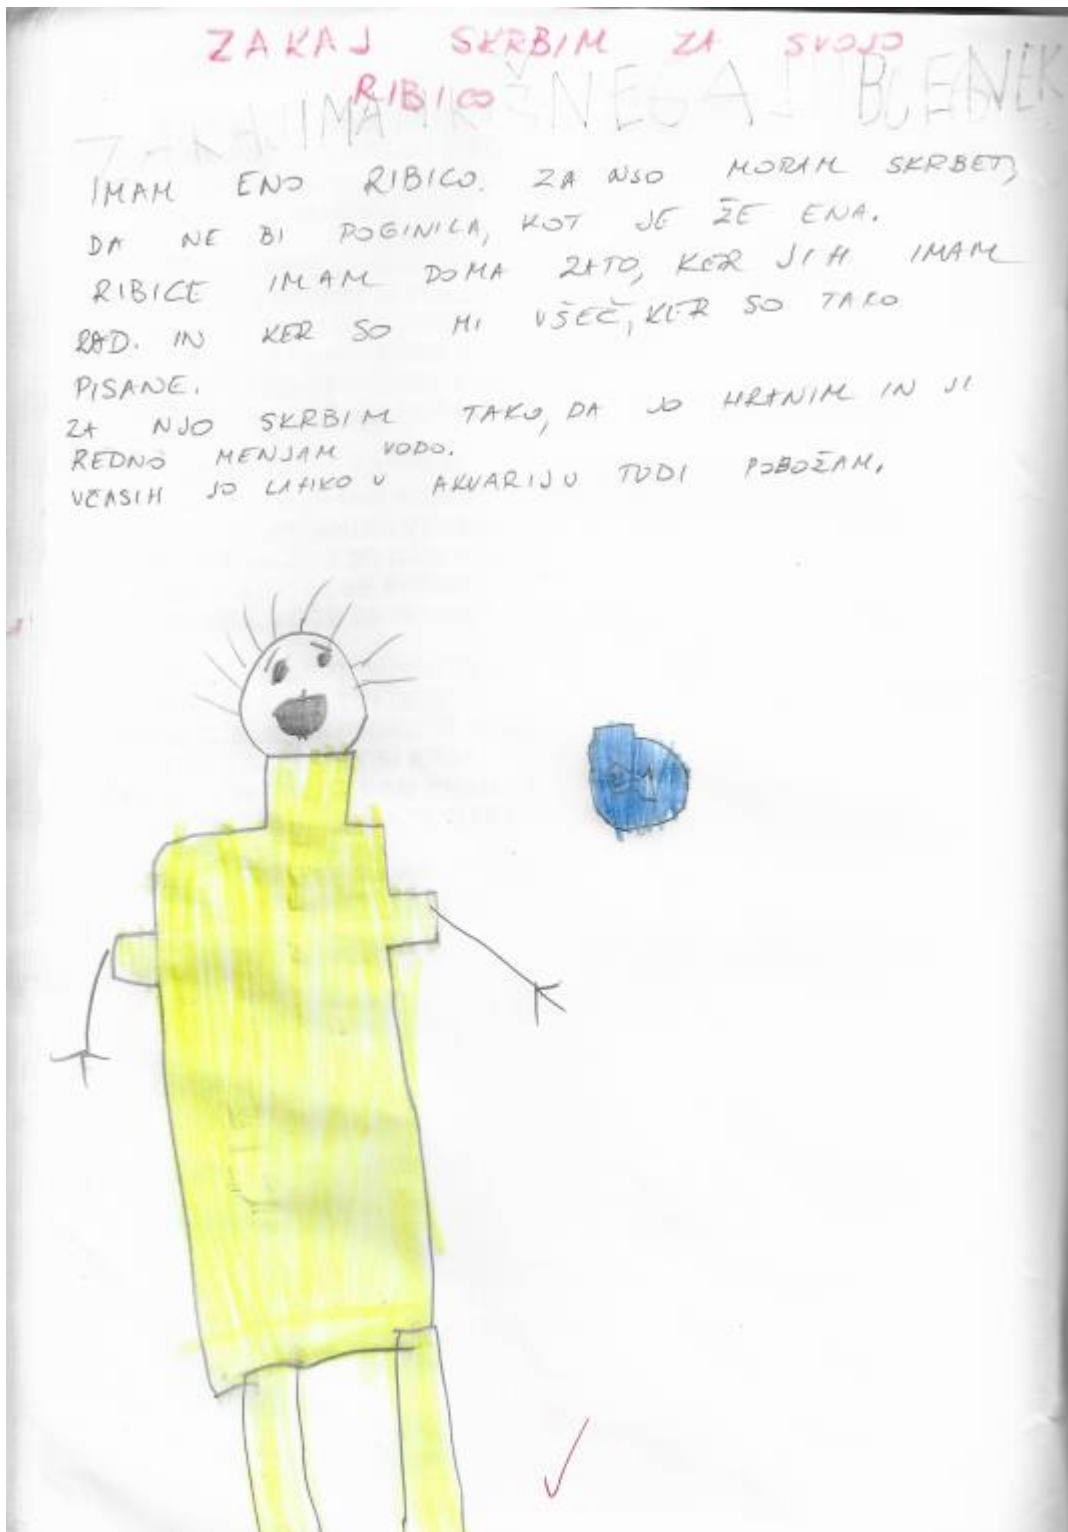 ZAKAJ SKRBIM ZA SVOJO
RIBICO
ZAKAJ IMAM HIŠNEGA LJUBLJENČK
IMAM ENO RIBICO. ZA NJO MORAM SKRBETI,
DA NE BI POGINILA, KOT JE ŽE ENA.
RIBICE IMAM DOMA ZATO, KER JIH IMAM
RAD. IN KER SO MI VŠEČ, KER SO TAKO
PISANE.
ZA NJO SKRBIM TAKO, DA JO HRANIM IN JI
REDNO MENJAM VODO.
VČASIH JO LAHKO V AKVARIJU TUDI POBOŽAM.